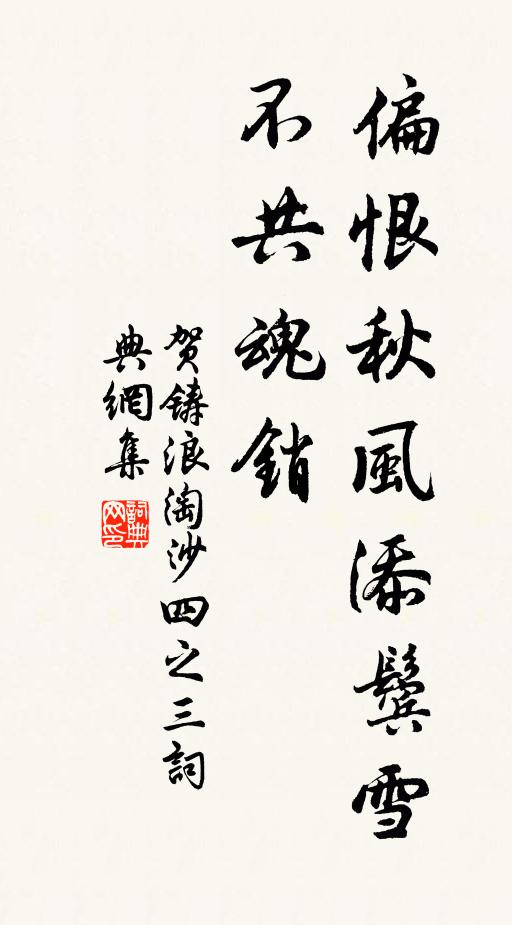 偏恨秋風添鬢雪
不共魂銷
賀鑄浪淘沙四之三詞
典網集
詞典网印